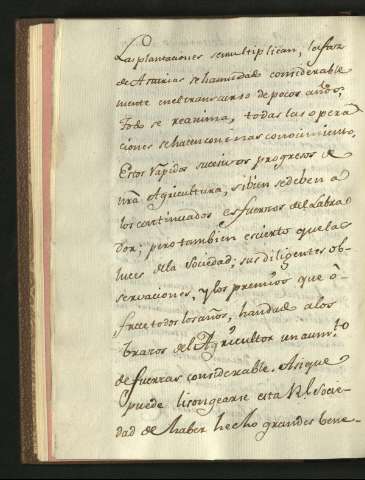 Las plantaciones se multiplican, la faz
de Asturias se ha mudado considerable
mente en el transcurso de pocos años;
todo se reanima, todas las opera
ciones se hacen con mas conocimiento.
Estos rápidos sucesivos progresos de
nrã Agricultura, si bien se deben a
los continuados esfuerzos del Labra
dor; pero tambien es cierto que las
luces de la Sociedad; sus diligentes ob
servaciones, y los premios que ô-
frece todos los años, han dado a los
brazos del Agricultor un aumto
de fuerzas considerable. Asi que
puede lisongearse esta Rl. Socie-
dad de haber hecho grandes bene-